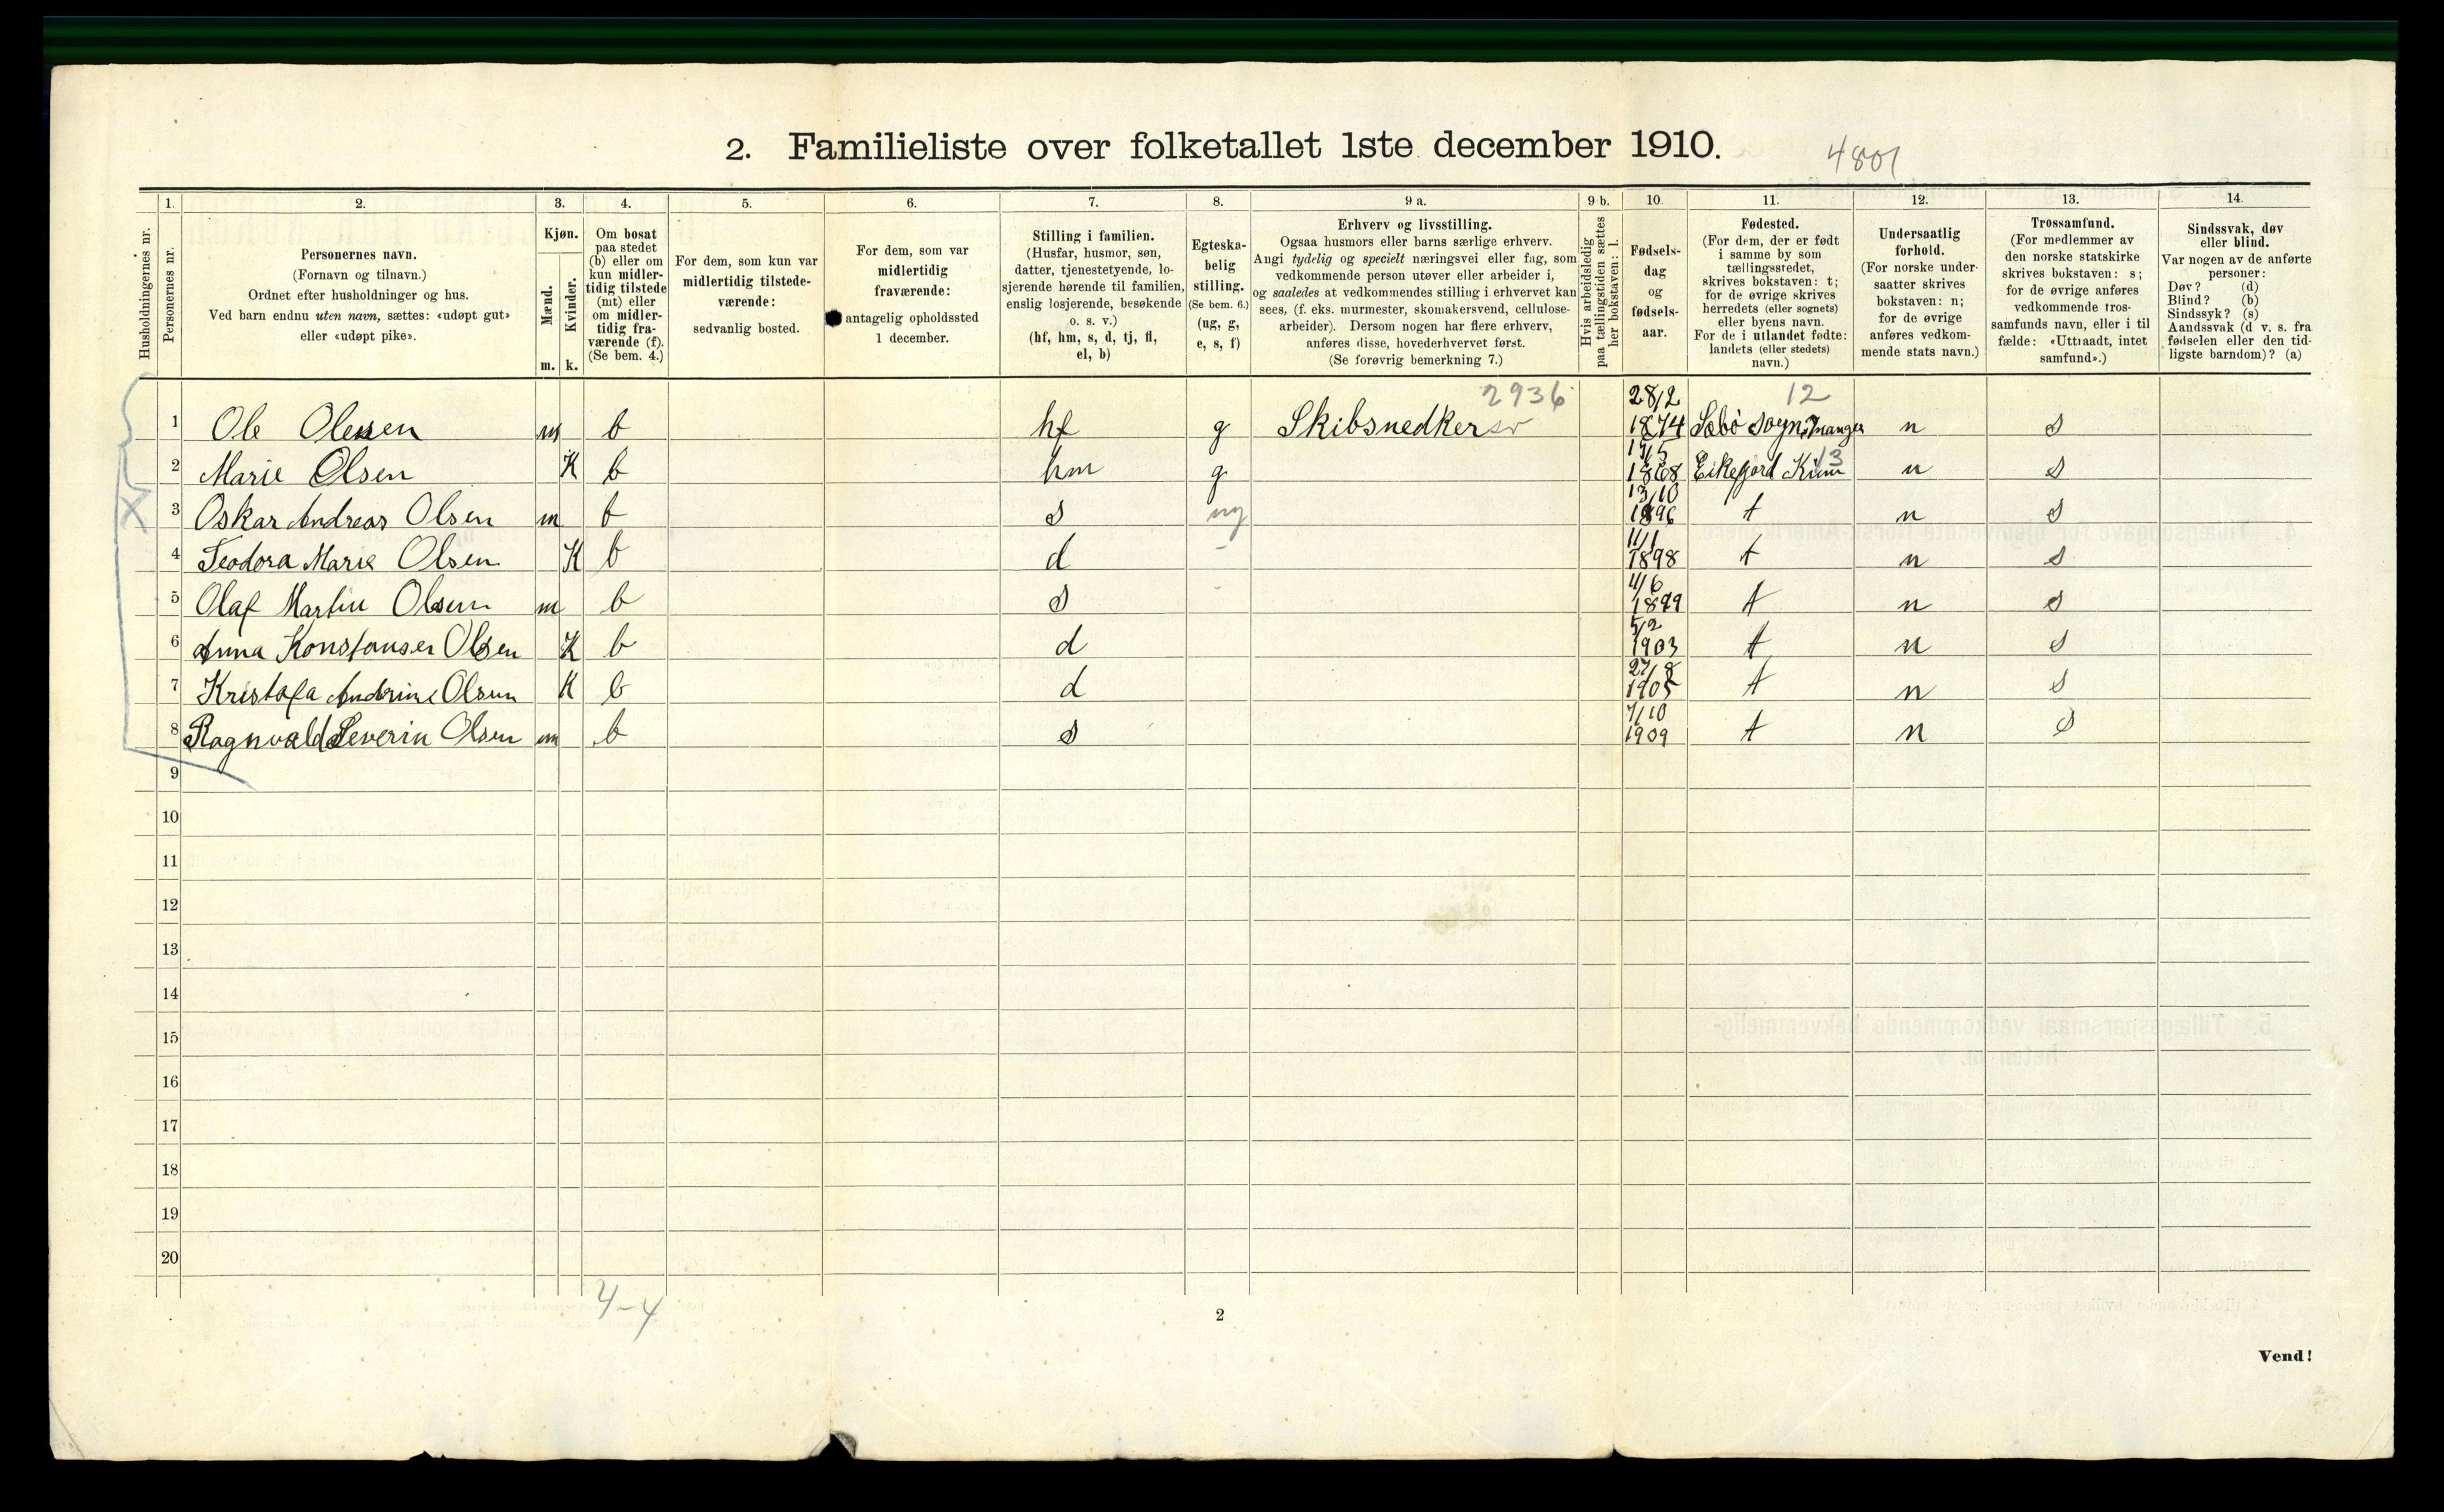 2. Familieliste over folketallet 1ste december 1910.
4801
Husholdningernes nr.
1.
Personernes nr.
2.
Personernes navn.
(Fornavn og tilnavn.)
Ordnet efter husholdninger og hus.
Ved barn endnu uten navn, sættes: «udøpt gut»
eller «udøpt pike».
3.
Kjøn.
Mænd.
Kvinder.
m. k.
4.
Om bosat
paa stedet
(b) eller om
kun midler-
tidig tilstede
(mt) eller
om midler-
tidig fra-
værende (f).
(Se bem. 4.)
5.
For dem, som kun var
midlertidig tilstede-
værende:
sedvanlig bosted.
6.
For dem, som var
midlertidig
fraværende:
antagelig opholdssted
1 december.
7.
Stilling i familien.
(Husfar, husmor, søn,
datter, tjenestetyende, lo-
sjerende hørende til familien,
enslig losjerende, besøkende
o. s. v.)
(hf, hm, s, d, tj, fl,
el, b)
8.
Egteska-
belig
stilling.
(Se bem. 6.)
(ug, g,
e, s, f)
9 a.
Erhverv og livsstilling.
Ogsaa husmors eller barns særlige erhverv.
Angi tydelig og specielt næringsvei eller fag, som
vedkommende person utøver eller arbeider i,
og saaledes at vedkommendes stilling i erhvervet kan
sees, (f. eks. murmester, skomakersvend, cellulose-
arbeider). Dersom nogen har flere erhverv,
anføres disse, hovederhvervet først.
(Se forøvrig bemerkning 7.)
9 b.
Hvis arbeidsledig
paa tællingstiden sættes
her bokstaven: l.
10.
Fødsels-
dag
og
fødsels-
aar.
11.
Fødested.
(For dem, der er født
i samme by som
tællingsstedet,
skrives bokstaven: t;
for de øvrige skrives
herredets (eller sognets)
eller byens navn.
For de i utlandet fødte:
landets (eller stedets)
navn.)
12.
Undersaatlig
forhold.
(For norske under-
saatter skrives
bokstaven: n;
for de øvrige
anføres vedkom-
mende stats navn.)
13.
Trossamfund.
(For medlemmer av
den norske statskirke
skrives bokstaven: s;
for de øvrige anføres
vedkommende tros-
samfunds navn, eller i til-
fælde: «Uttraadt, intet
samfund».)
14.
Sindssvak, døv
eller blind.
Var nogen av de anførte
personer:
Døv? (d)
Blind? (b)
Sindssyk? (s)
Aandssvak (d. v. s. fra
fødselen eller den tid-
ligste barndom)? (a)
2936 12
1 Ole Olesen m b hf g Skibsnedker 28/2 1874 Sæbø Sogn, Manger n s
13
2 Marie Olsen K b hm g 1868 Eikefjord Kinn n s
3 Oskar Andreas Olsen m b s ug 13/10 1896 t n s
4 Teodora Marie Olsen K b d - 11/1 1898 t n s
5 Olaf Martin Olsen m b s - 4/6 1899 t n s
6 Anna Konstanser Olsen K b d 5/2 1903 t n s
7 Kristofa Andrine Olsen K b d 27/8 1905 t n s
8 Ragnvald Severin Olsen m b s 7/10 1909 t n s
9
10
11
12
13
14
15
16
17
18
19
20
4-4
2
Vend!